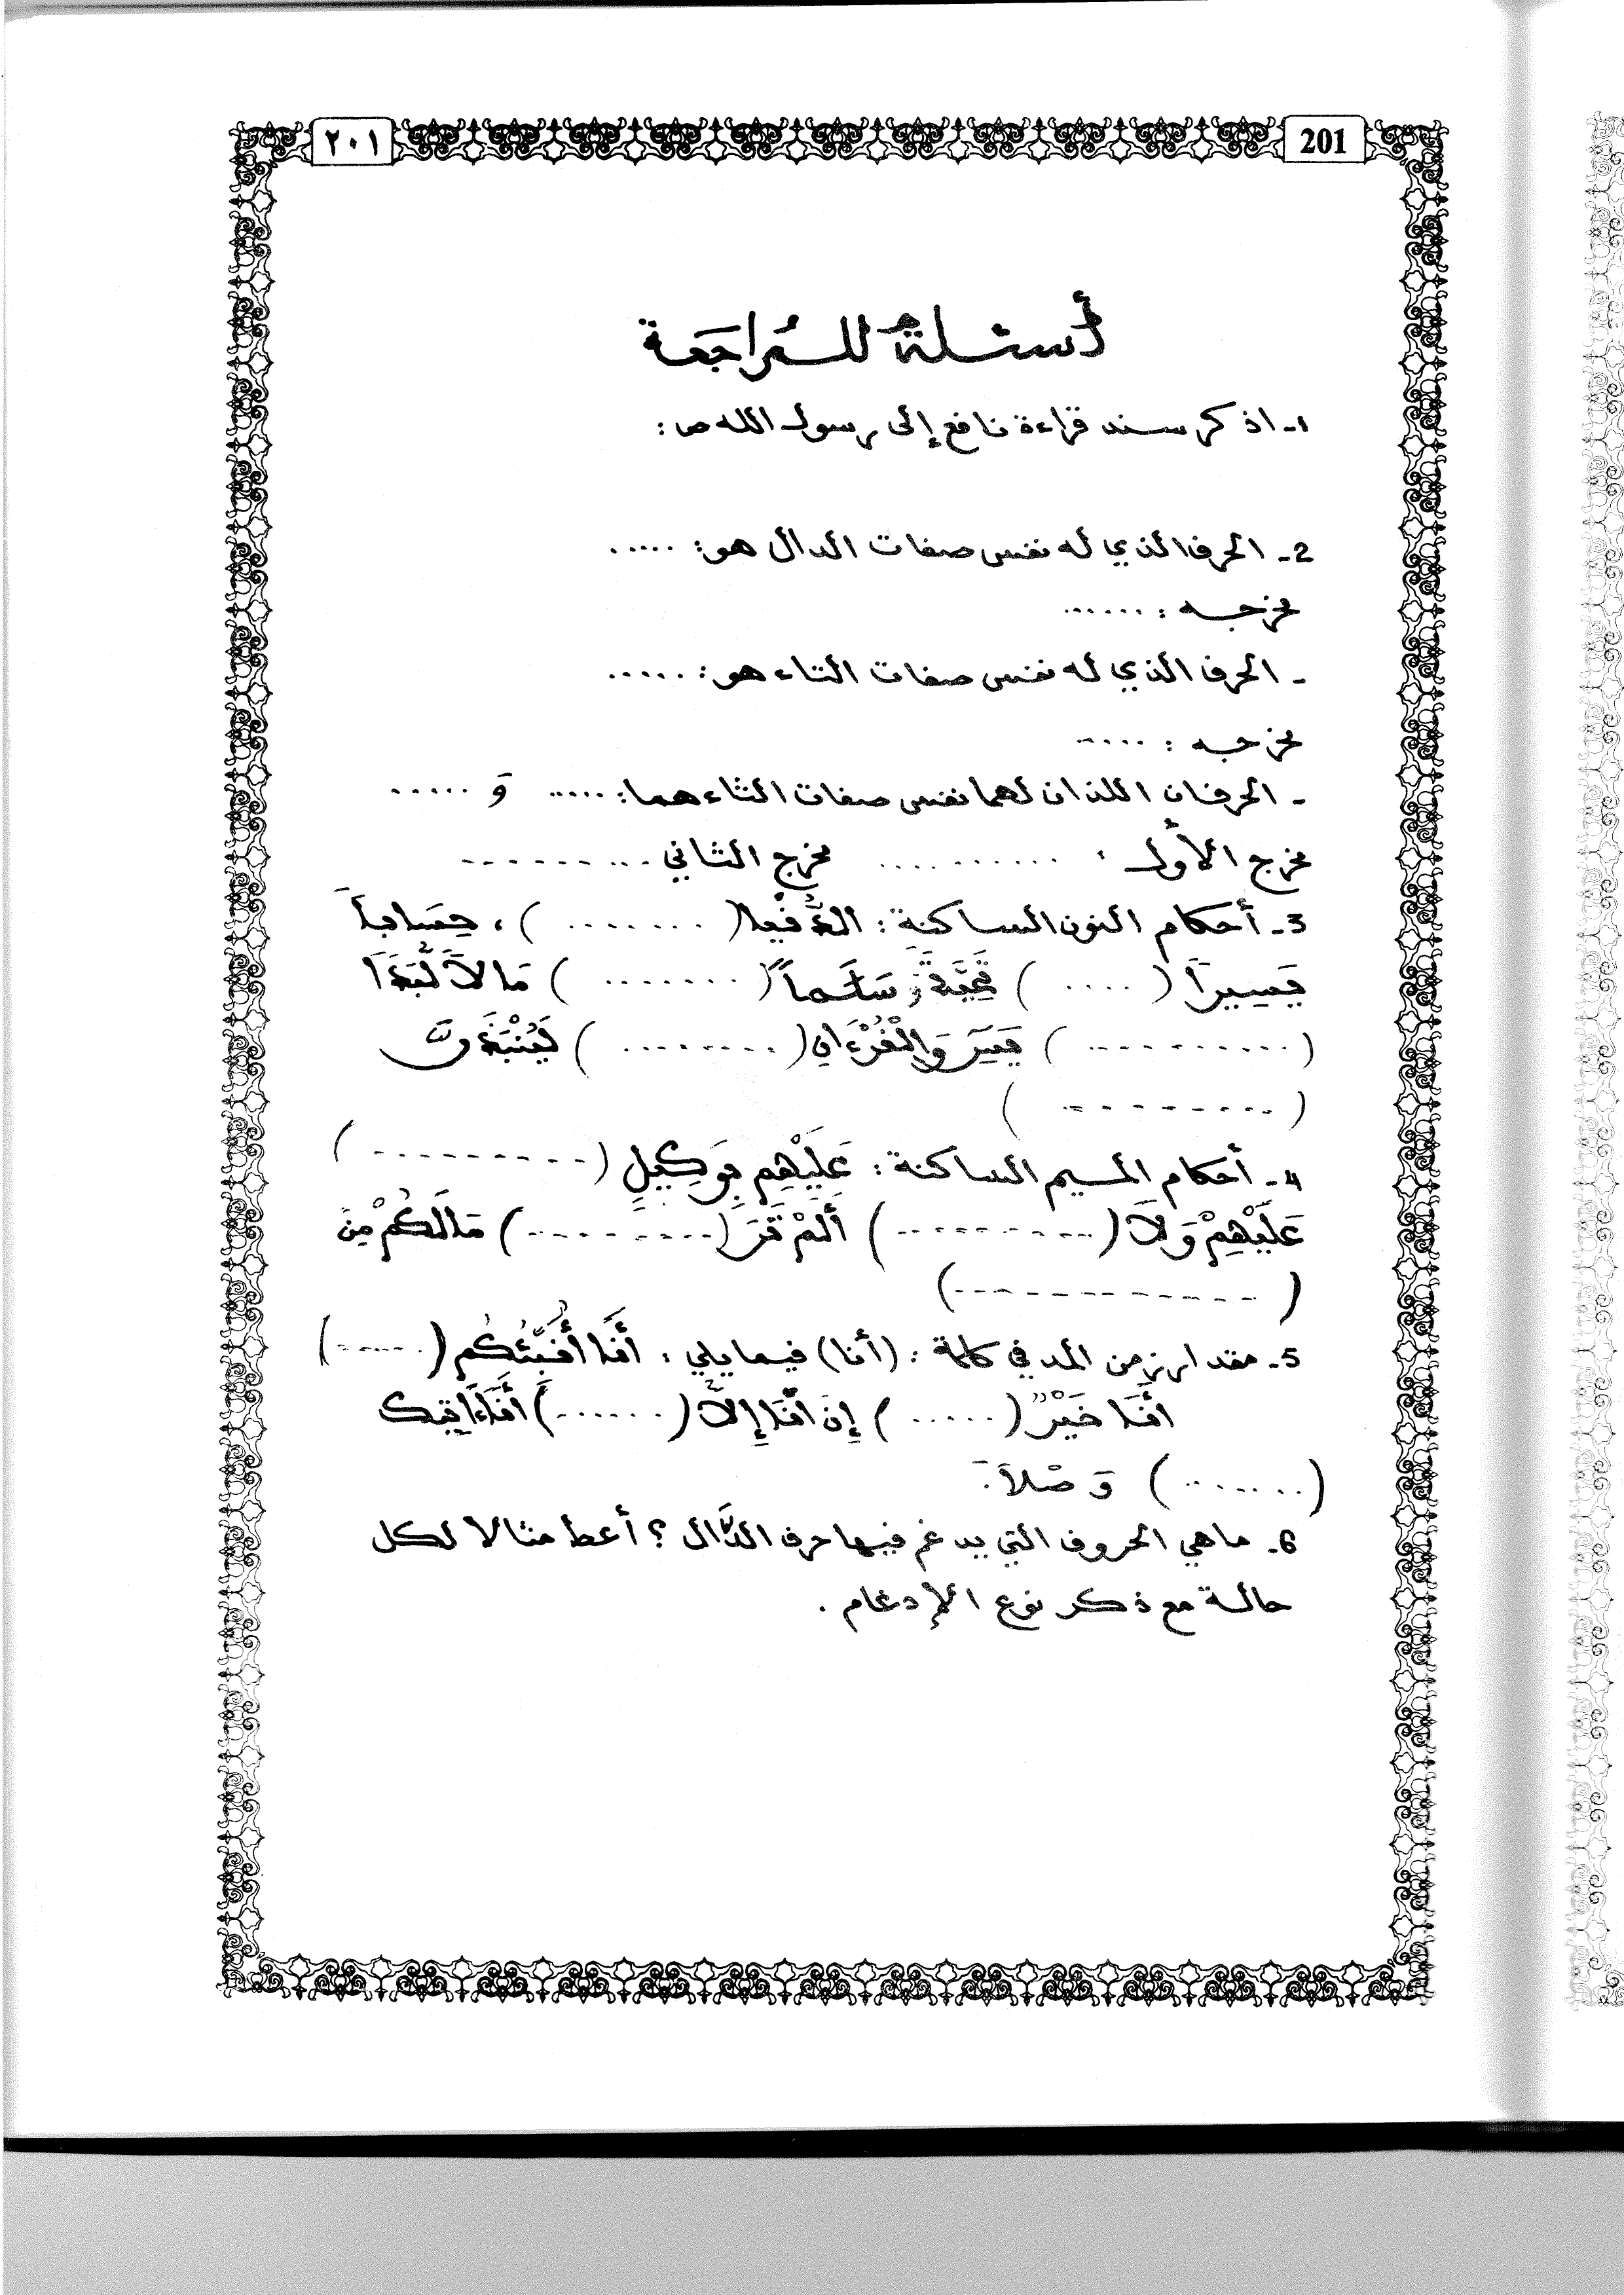 ٢٠١
201
أسئلة للمُراجَعة
1- اذكر سند قراءة نافع إلى رسول الله ص :
2- الحرف الذي له نفس صفات الدال هو: .....
مخرجه : ......
- الحرف الذي له نفس صفات التاء هو: ......
مخرجه : .....
- الحرفان اللذان لهما نفس صفات الثاء هما: ..... وَ .....
مخرج الأول : .......... مخرج الثاني ..........
3- أحكام النون الساكنة : الدُّنْيا ( ........ ) ، حِسَاباً
يَسِيراً ( .... ) تَحِيَّةً وَسَلَٰماً ( ....... ) مَالاً لُّبَداً
( .......... ) يَسِٓ وَالْقُرْءَانِ ( ........ ) لَيُنْبَذَنَّ
( ........ )
4- أحكام الميم الساكنة : عَلَيْهِم بِوَكِيلٍ ( ......... )
عَلَيْهِمْ وَلاَ ( ......... ) أَلَمْ تَرَ ( ......... ) مَالَكُمْ مِن
( ............ )
5- مقدار زمن المد في كلمة : (أنا) فيما يلي : أَنَا أُنَبِّئُكُم ( ...... )
أَنَا خَيْرٌ ( ..... ) إِنَ اَنَا إِلاَّ ( ...... ) أَنَا ءَاتِيكَ
( ...... ) وَصْلاً .
6- ماهي الحروف التي يدغم فيها حرف الدَّال ؟ أعط مثالا لكل
حالة مع ذكر نوع الإدغام .